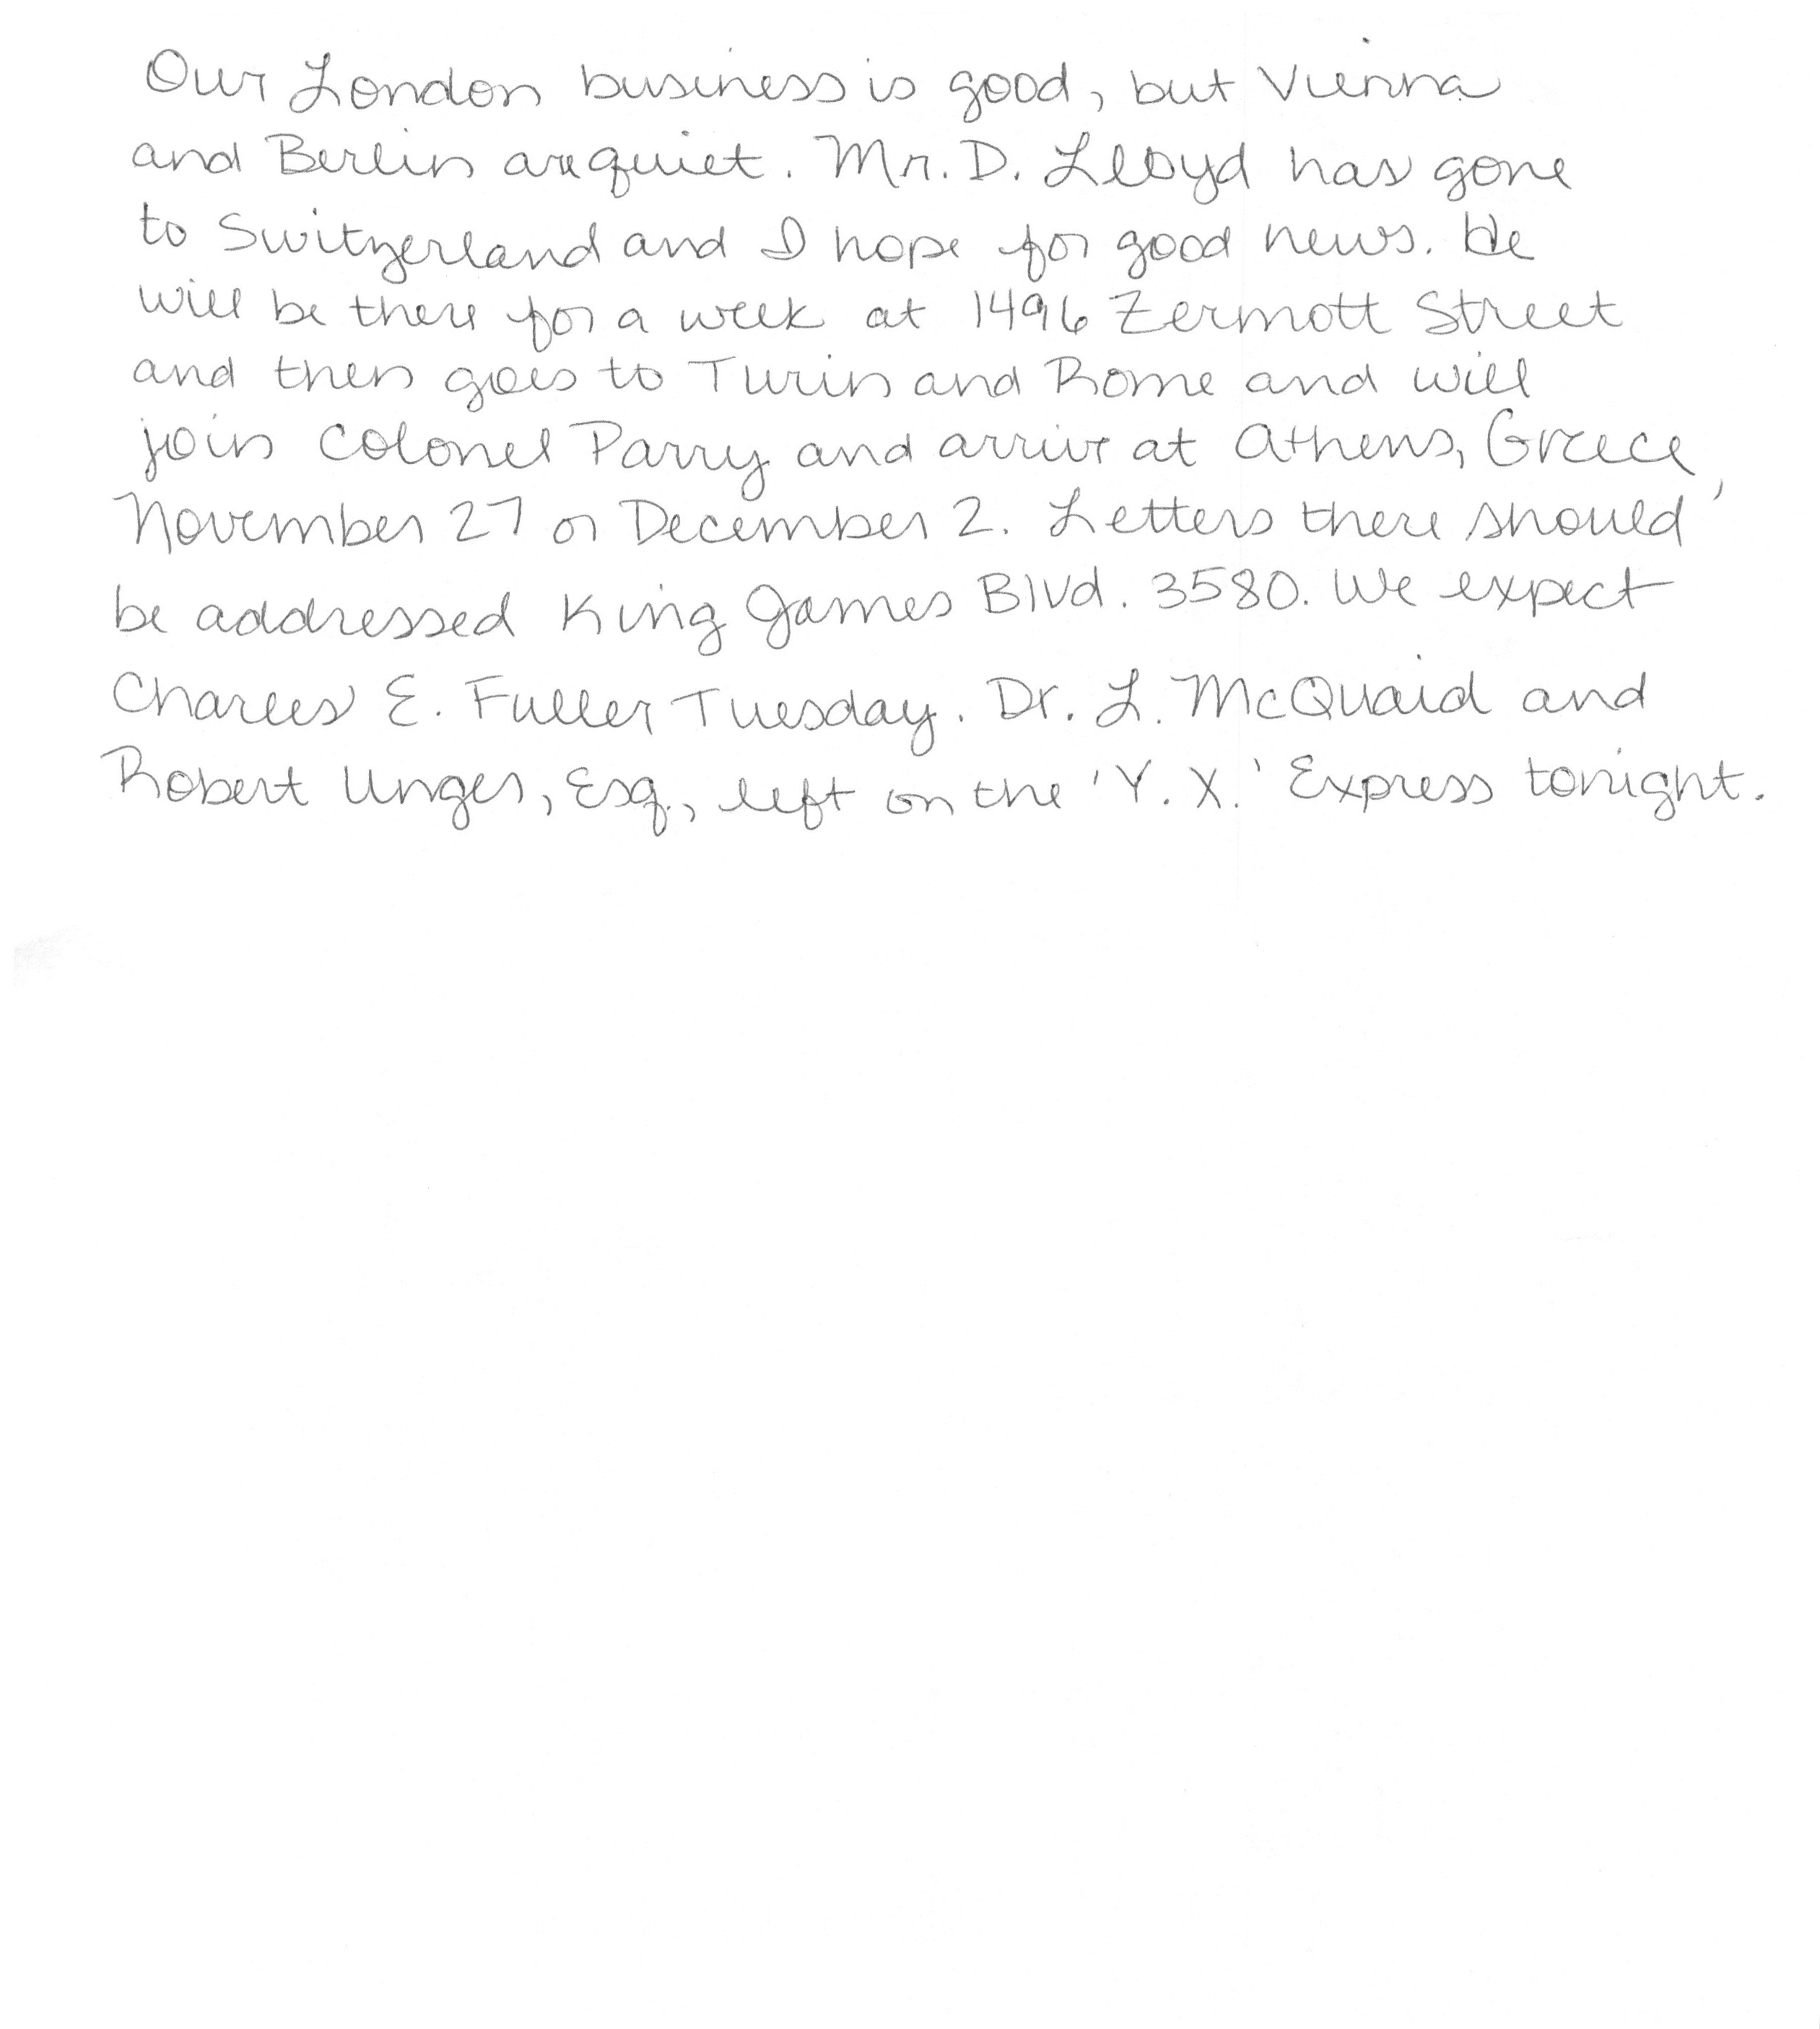 Our London business is good, but Vienna
and Berlin are quiet. Mr. D. Lloyd has gone
to Switzerland and I hope for good news. He
will be there for a week at 1496 Zermott Street
and then goes to Turin and Rome and will
join Colonel Parry and arrive at Athens, Greece,
November 27 or December 2. Letters there should
be addressed King James Blvd. 3580. We expect
Charles E. Fuller Tuesday. Dr. L. McQuaid and
Robert Unger, Esq., left on the 'Y. X.' Express tonight.